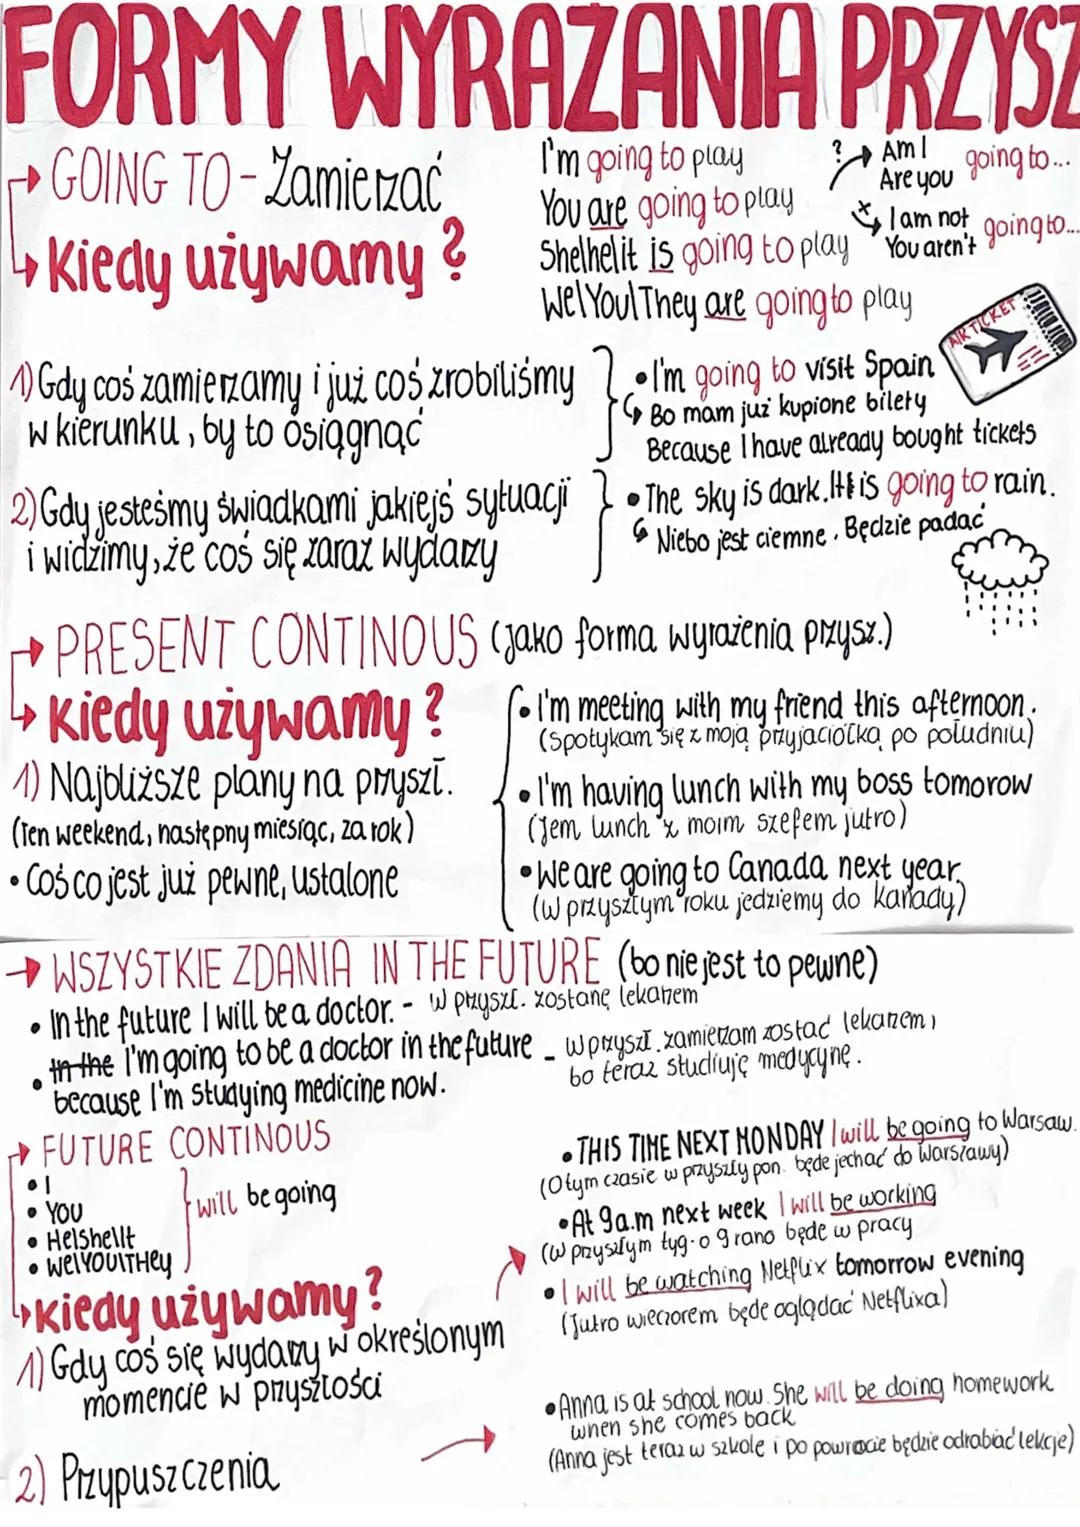 FORMY WYRAŻANIA PRZYSZ
GOING TO - Zamierzać
Kiedy używamy?
I'm going to play
You are going to play
She|he|it is going to play
We|You|They are going to play
? Am I going to...
Are you
x I am not going to...
You aren't
AIR TICKET
1) Gdy coś zamierzamy i już coś zrobiliśmy
w kierunku, by to osiągnąć
• I'm going to visit Spain
Bo mam już kupione bilety
Because I have already bought tickets
2) Gdy jesteśmy świadkami jakiejś sytuacji
i widzimy, że coś się zaraz wydarzy
• The sky is dark. It is going to rain.
Niebo jest ciemne. Będzie padać
PRESENT CONTINOUS (jako forma wyrażenia przysz.)
Kiedy używamy?
1) Najbliższe plany na przyszł.
(Ten weekend, następny miesiąc, za rok)
• Coś co jest już pewne, ustalone
• I'm meeting with my friend this afternoon.
(spotykam się z moją przyjaciółką po południu)
• I'm having lunch with my boss tomorow
(Jem lunch z moim szefem jutro)
• We are going to Canada next year.
(w przyszłym roku jedziemy do kanady)
WSZYSTKIE ZDANIA IN THE FUTURE (bo nie jest to pewne)
• In the future I will be a doctor. - w przyszł. zostanę lekarzem
• In the I'm going to be a doctor in the future - w przyszł. zamierzam zostać lekarzem,
because I'm studying medicine now. bo teraz studiuję medycynę.
FUTURE CONTINOUS
• I
• You
• He|she|It
• We|YOU|They
will be going
Kiedy używamy?
1) Gdy coś się wydarzy w określonym
momencie w przyszłości
• THIS TIME NEXT MONDAY I will be going to Warsaw.
(O tym czasie w przyszły pon. będe jechać do Warszawy)
• At 9a.m next week I will be working
(w przyszłym tyg. o 9 rano będe w pracy
• I will be watching Netflix tomorrow evening
(Jutro wieczorem będe oglądać Netflixa)
2) Przypuszczenia
• Anna is at school now. She will be doing homework
when she comes back
(Anna jest teraz w szkole i po powrocie będzie odrabiać lekcje)